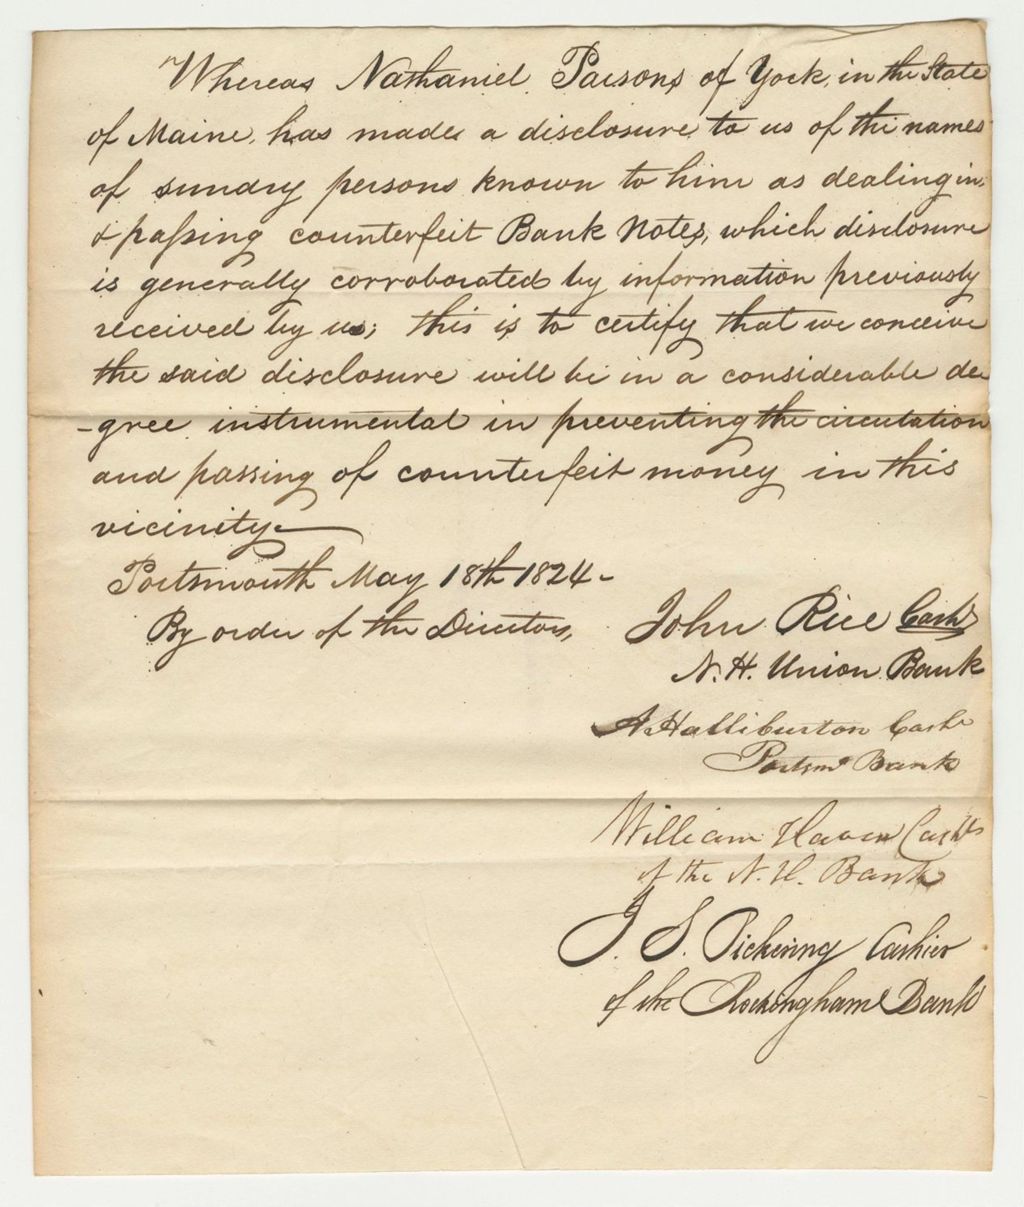 Whereas Nathaniel Parsons of York, in the State
of Maine, has made a disclosure to us of the names
of sundry persons known to him as dealing in,
& passing counterfeit Bank Notes, which disclosure
is generally corroborated by information previously
received by us; this is to certify that we conceive
the said disclosure will be in a considerable de
-gree instrumental in preventing the circulation
and passing of counterfeit money in this
vicinity.
Portsmouth May 18th 1824-
By order of the Directors,
John Rice Cashr
N. H. Union Bank
A Halliburton Cashr
Portsmo Bank
William Haven Cashr
of the N. H. Bank
J. S. Pickering Cashier
of the Rockingham Bank